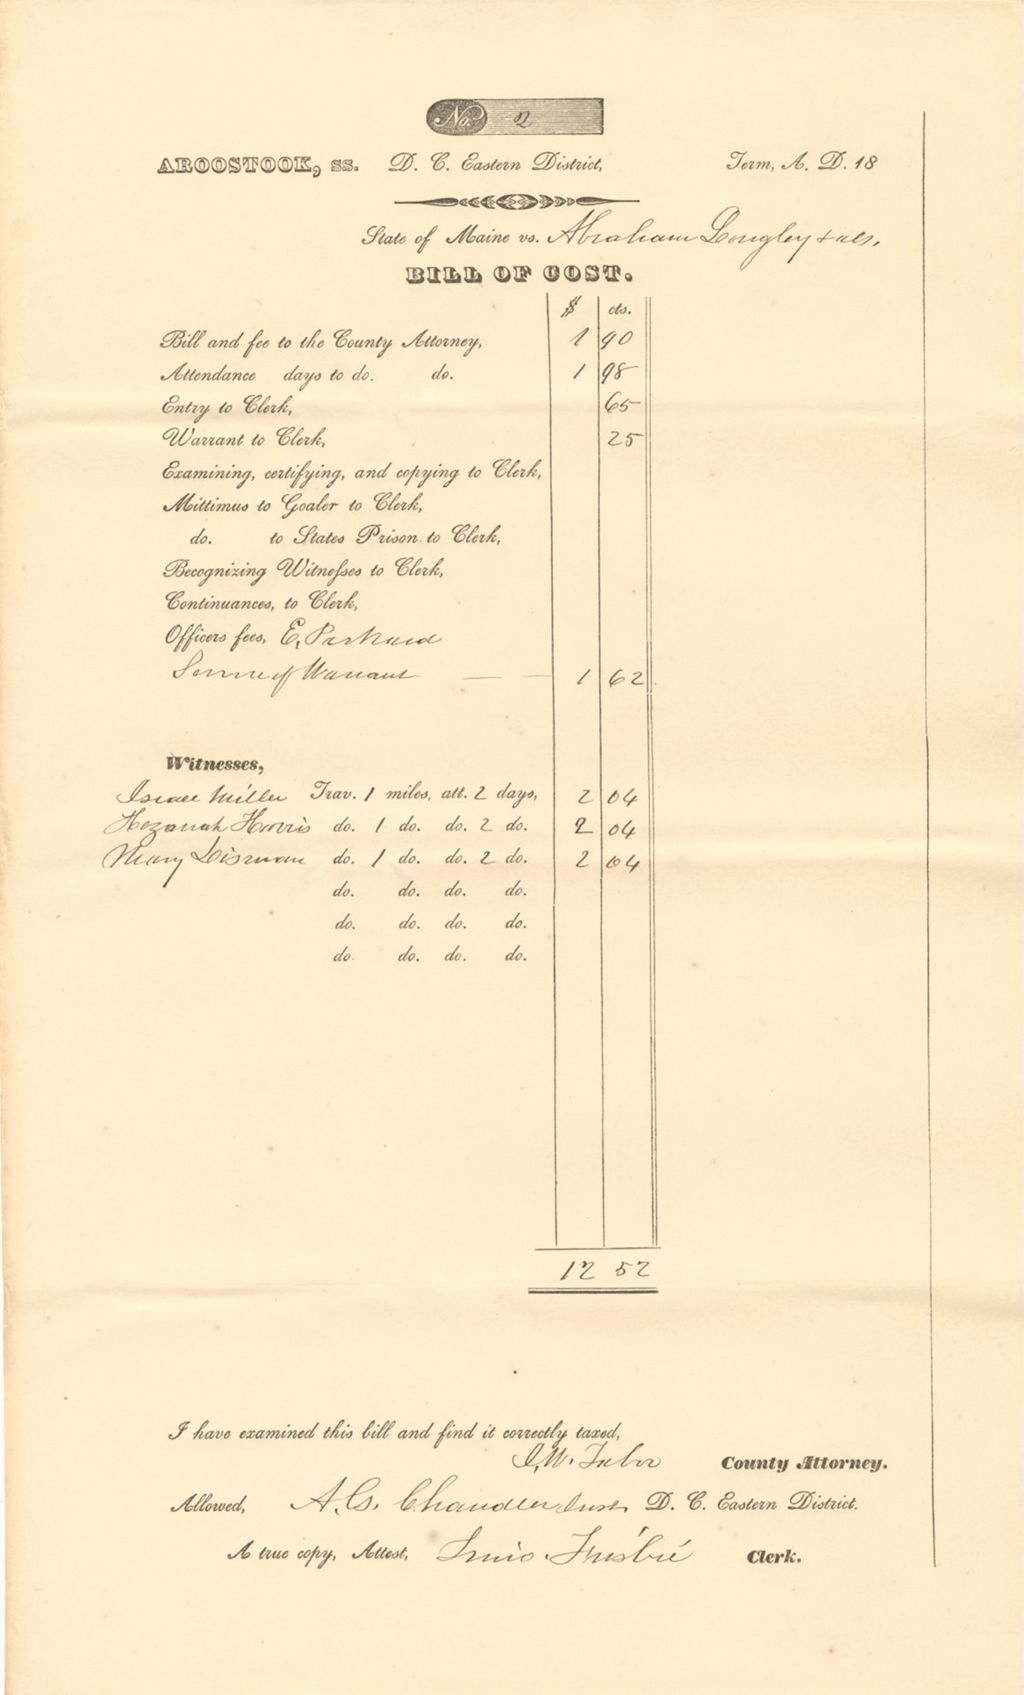 No. 2
AROOSTOOK, ss. D. C. Eastern District, Term, A. D. 18
State of Maine vs. Abraham Longley & als,
BILL OF COST.
$ cts.
Bill and fee to the County Attorney, 1 90
Attendance days to do. do. 1 98
Entry to Clerk, 65
Warrant to Clerk, 25
Examining, certifying, and copying to Clerk,
Mittimus to Goaler to Clerk,
do. to States Prison to Clerk,
Recognizing Witnesses to Clerk,
Continuances, to Clerk,
Officers fees, E. Packard
Service of Warrant 1 62
Witnesses,
Israel Miller Trav. 1 miles, att. 2 days, 2 04
Harris do. 1 do. do. 2 do. 2 04
Mary do. 1 do. do. 2 do. 2 04
do. do. do. do.
do. do. do. do.
do. do. do. do.
12 52
I have examined this bill and find it correctly taxed,
I. W. Tabor County Attorney.
Allowed, A. G. Chandler Just. D. C. Eastern District.
A true copy, Attest, Frisbie Clerk.